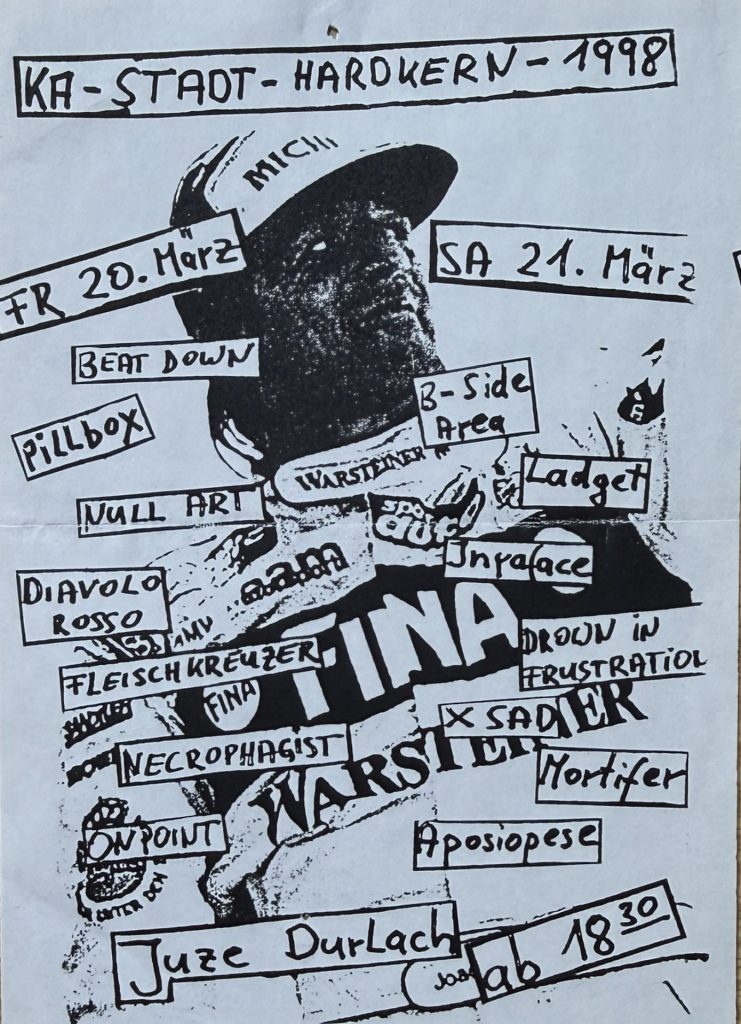 KA-STADT-HARDKERN-1998
MICH
FR 20. März
SA 21. März
BEAT DOWN
B-Side
Area
Pillbox
WARSTEINER
Ladget
NULL ART
Inpalace
DIAVOLO
ROSSO
FINA
DROWN in
FRUSTRATION
FLEISCHKREUZER
FINA
X SAD
WARSTEINER
NECROPHAGIST
Mortifer
ONPOINT
Aposiopese
UNTER DEM
Juze Durlach
ab 18 30